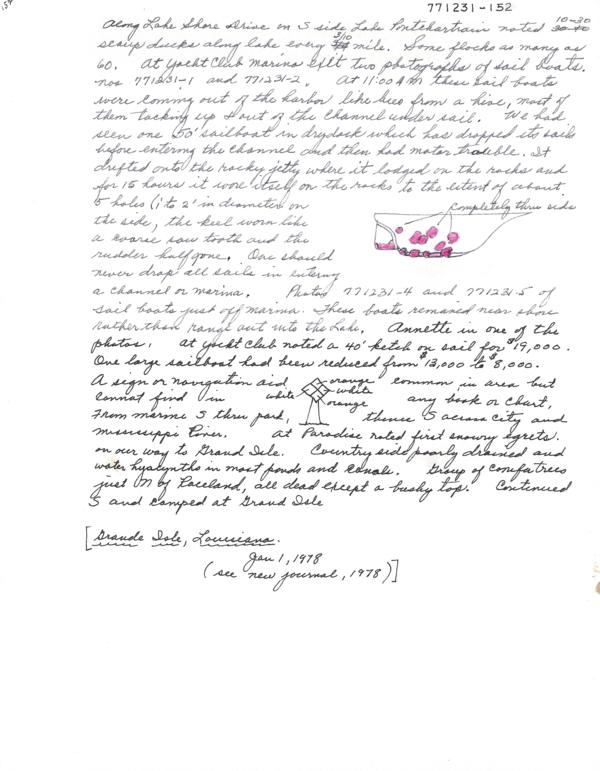 154
771231-152
Along Lake Shore Drive on S side Lake Pontchartrain noted 10-30
scaup ducks along lake every 3/10 mile. Some flocks as many as
60. At Yacht Club Marina exlt two photographs of sail boats.
nos 771231-1 and 771231-2. At 11:00 AM these sail boats
were coming out of the harbor like bees from a hive, most of
them tacking up & out of the channel under sail. We had
seen one 50' sailboat in drydock which has dropped its sails
before entering the channel and then had motor trouble. It
drifted onto the rocky jetty where it lodged on the rocks and
for 15 hours it wore itself on the rocks to the extent of about
5 holes (1 to 2' in diameter on
completely thru side
the side, the keel worn like
a coarse saw tooth and the
rudder half gone. One should
never drop all sails in entering
a channel or marina. Photos 771231-4 and 771231-5 of
sail boats just off marina. These boats remained near shore
rather than range out into the Lake. Annette in one of the
photos. At yacht Club noted a 40' ketch on sail for $19,000.
One large sailboat had been reduced from $13,000 to $8,000.
A sign or navigation aid orange common in area but
white white
cannot find in orange any book or chart.
From marina S thru park, thence S across city and
Mississippi River. At Paradise noted first snowy egrets.
on our way to Grand Isle. Country side poorly drained and
water hyacynths in most ponds and canals. Group of trees
just N of Raceland, all dead except a bushy top. Continued
S and camped at Grand Isle
[Grande Isle, Louisiana.
Jan 1, 1978
(see new journal, 1978)]